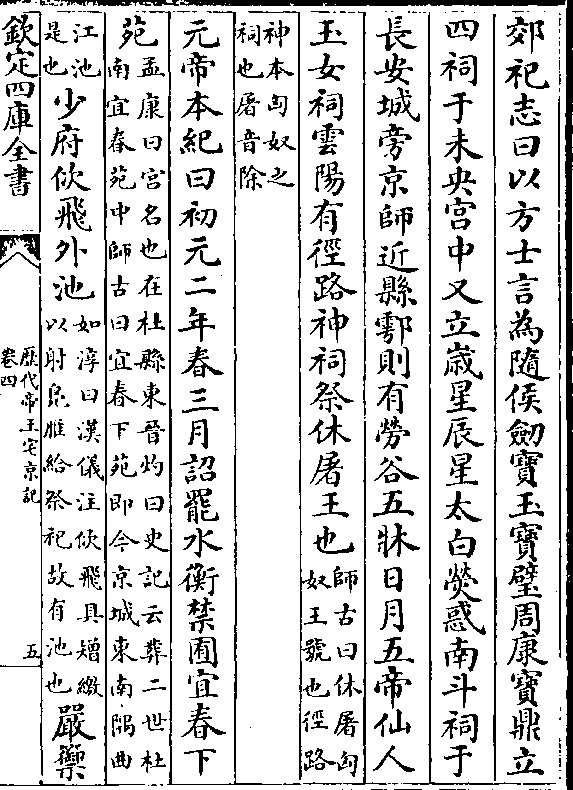 郊祀志曰以方士言為隨侯劒寶玉寶璧周康寶鼎立
四祠于未央宫中又立嵗星辰星太白熒惑南斗祠于
長安城旁京師近縣鄠則有勞谷五牀日月五帝仙人
玉女祠雲陽有徑路神祠祭休屠王也師古曰休屠匈
奴王號也徑路
神本匈奴之
祠也屠音除
元帝本紀曰初元二年春三月詔罷水衡禁囿宜春下
苑孟康曰宫名也在杜縣東晉灼曰史記云葬二世杜
南宜春苑中師古曰宜春下苑即今京城東南隅曲
江池
是也少府佽飛外池如淳曰漢儀注佽飛具矰繳
以射鳬雁給祭祀故有池也嚴籞
欽定四庫全書
歴代帝王宅京記
卷四
五